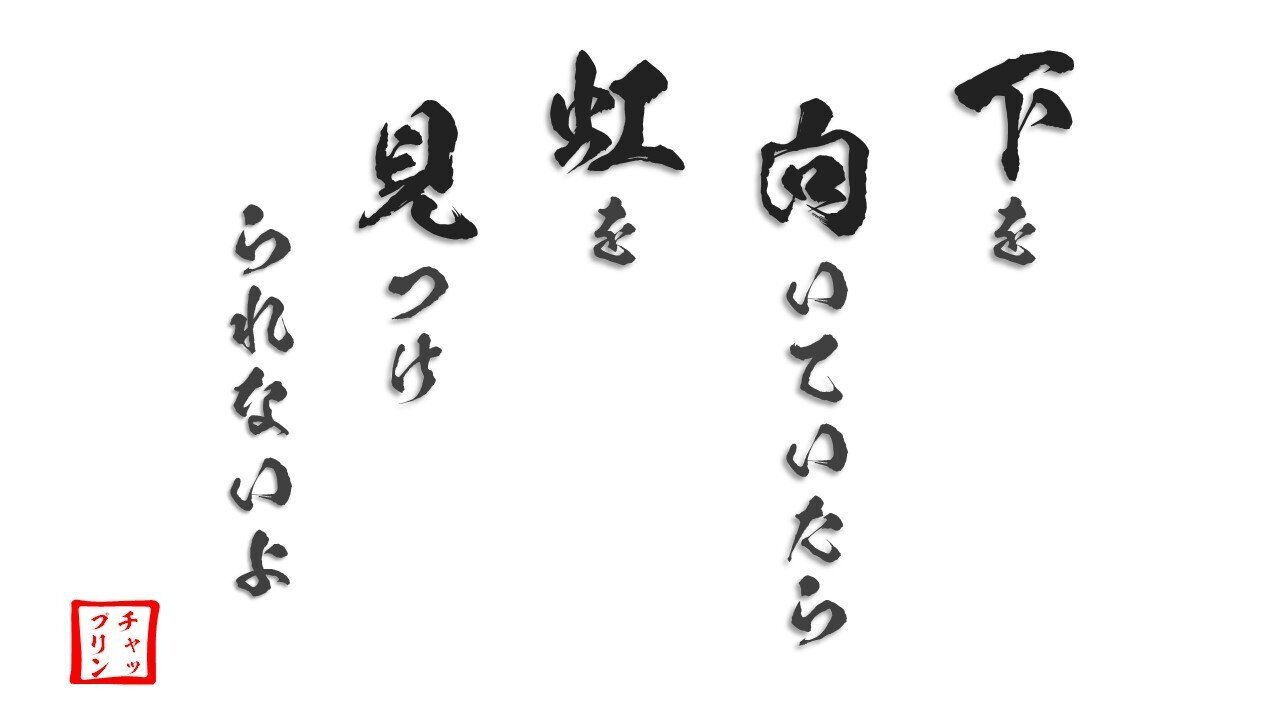 下を
向いていたら
虹を
見つけ
られないよ
チャッ
プリン